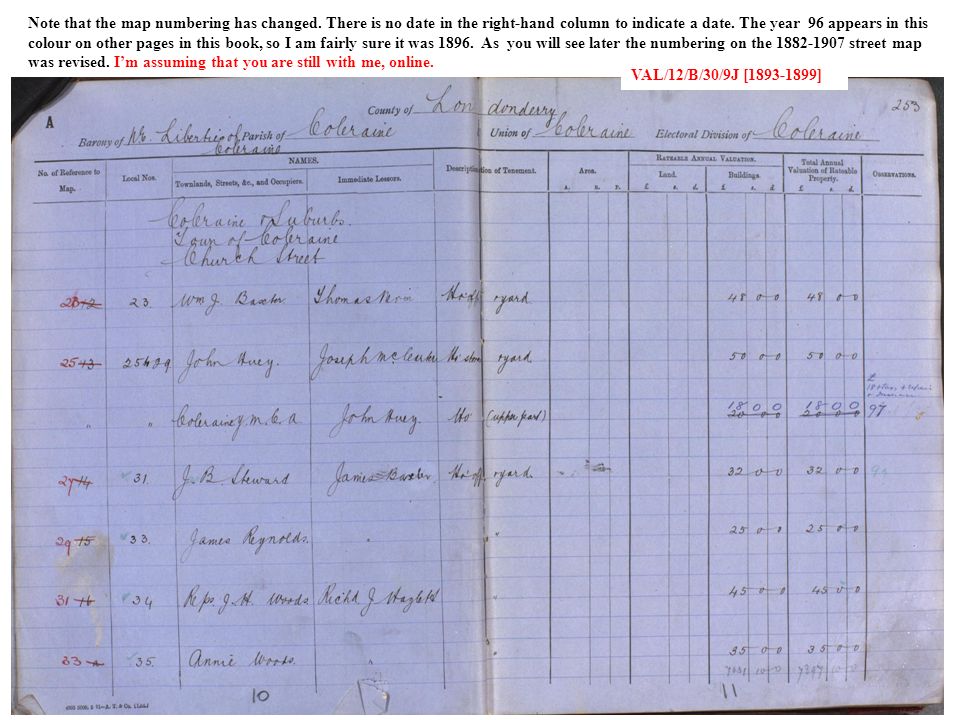 Note that the map numbering has changed. There is no date in the right-hand column to indicate a date. The year 96 appears in this
colour on other pages in this book, so I am fairly sure it was 1896. As you will see later the numbering on the 1882-1907 street map
was revised. I'm assuming that you are still with me, online.
VAL/12/B/30/9J [1893-1899]
A
County of Londonderry
253
Barony of Liberties of Coleraine Parish of Coleraine Union of Coleraine Electoral Division of Coleraine
No. of Reference to Map. Local Nos. NAMES. Description of Tenement. Area. RATEABLE ANNUAL VALUATION. Total Annual Valuation of Rateable Property. OBSERVATIONS.
Townlands, Streets, &c., and Occupiers. Immediate Lessors. A. R. P. Land. £ s. d. Buildings. £ s. d. £ s. d.
Coleraine & Suburbs.
Town of Coleraine
Church Street
23. Wm J. Baxter Thomas Ho off yard 48 0 0 48 0 0
25 13 John Huey. Joseph Ho store yard 50 0 0 50 0 0
" " Coleraine Y.M.C.A John Huey. Ho (upper part) 18 0 0 20 0 0 18 0 0 20 0 0 97
27 14 31. J.B. Steward James Baxter Ho off. yard. 32 0 0 32 0 0
29 15 33. James Reynolds. " " 25 0 0 25 0 0
31 16 34 Reps. J.H. Woods Richd J Hazlett " 45 0 0 45 0 0
33 35. Annie Woods. " " 35 0 0 35 0 0
10 11